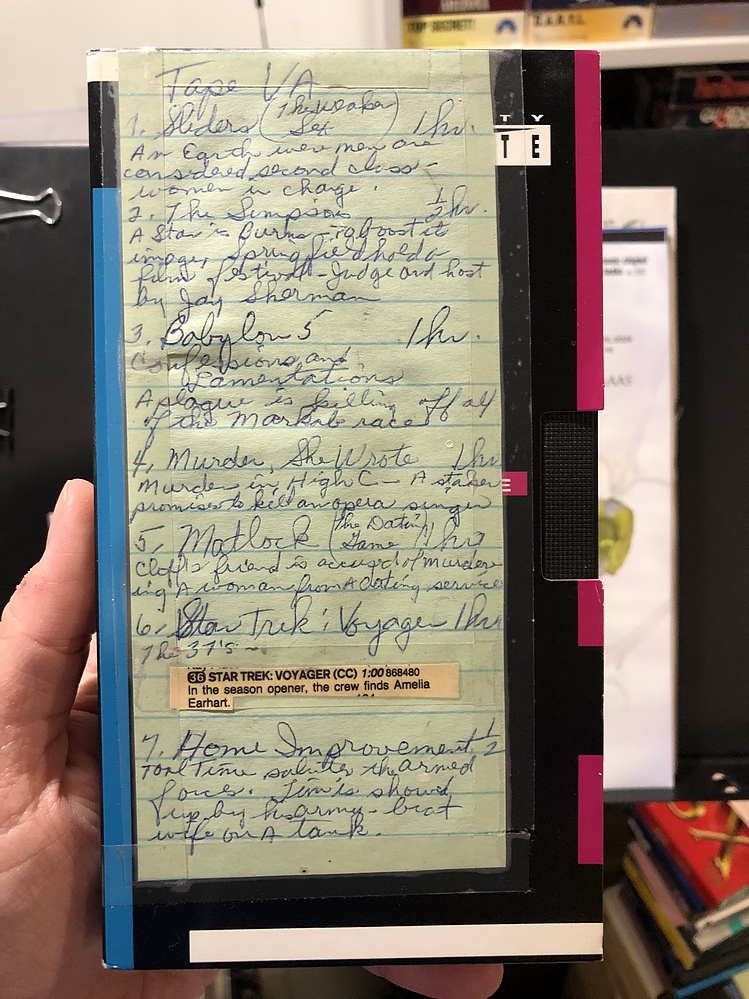 TOP SECRET!
Tape VA
1. Sliders (The weaker Sex) 1 hr.
An Earth were men are
considered second class -
women in charge.
2. The Simpsons 1/2 hr.
A Star is Burns - to boost it
image, Springfield holds
film festival - Judge and host
by Jay Sherman
3. Babylon 5 1 hr.
Confessions and
Lamentations
A plague is killing off all
of the Markab race
4. Murder, She Wrote 1hr
Murder in High C - A stalker
promises to kill an opera singer
5. Matlock (The Dating Game) 1 hr
Cliff's friend is accused of murder-
ing A woman from A dating service
6. Star Trek: Voyager 1hr
The 37's -
36 STAR TREK: VOYAGER (CC) 1:00 868480
In the season opener, the crew finds Amelia
Earhart.
7. Home Improvement 1/2
Tool Time salutes the armed
forces. Tim is showed
up by his army-brat
wife on A tank.
TY
TE
E